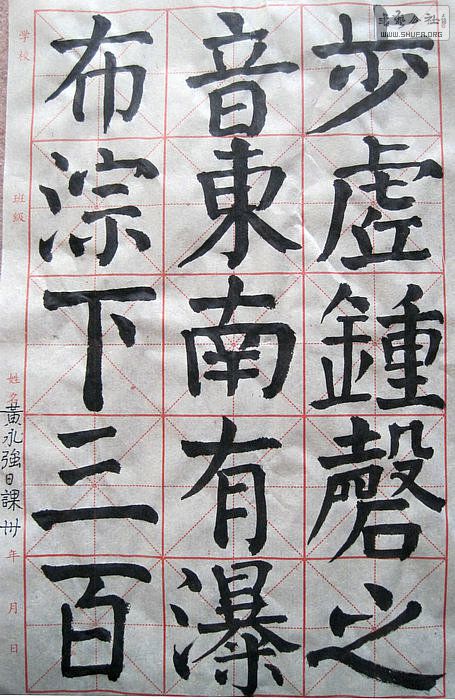 步虛鍾磬之
音東南有瀑
布淙下三百
學校
班級
姓名
黃永強日課卅
年 月 日
WWW.SHUFA.ORG